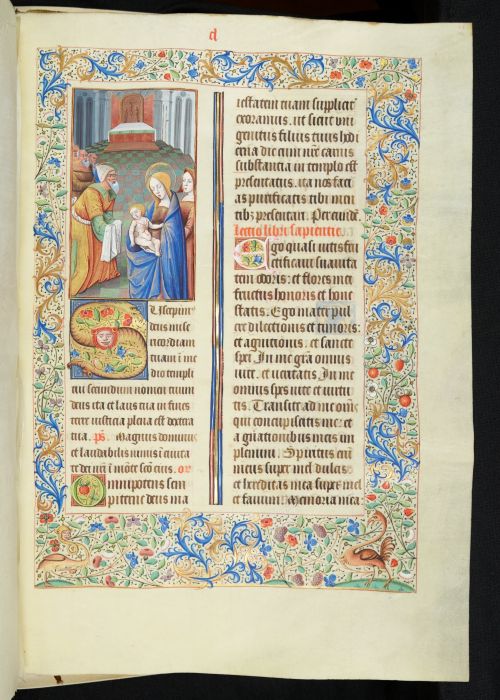 cl
Suscepim⁹
deus mise
ricordiam
tuam ī me
dio templi
tui secundum nomen tuum
deus ita et laus tua in fines
terre iusticia plena est dextera
tua. ps. Magnus dominus
et laudabilis nimis ī ciuita
te dei nr̄i ī mōte sc̄o eius. or̄
Omnipotens sem
piterne deus ma
iestatem tuam supplicit̄
exoramus. ut sicut uni
genitus filius tuus hodi
erna die cum nr̄e carnis
substantia in templo est
presentatus. ita nos faci
as purificatis tibi men
tib⁹ presentari. Per eundē.
Lectio libri sapientie.
Ego quasi uitis fru
ctificaui suauita
tem odoris: et flores mei
fructus honoris et hone
statis. Ego mater pul
cre dilectionis et timoris:
et agnitionis. et sancte
spei. In me gr̄a omnis
uite. et ueritatis. In me
omnis spes uite et uirtu
tis. Transite ad me om̄s
qui concupiscitis me: et
a gn̄ationibus meis im
plemini. Spiritus enī
meus super mel dulcis:
et hereditas mea super mel
et fauum. Memoria mea